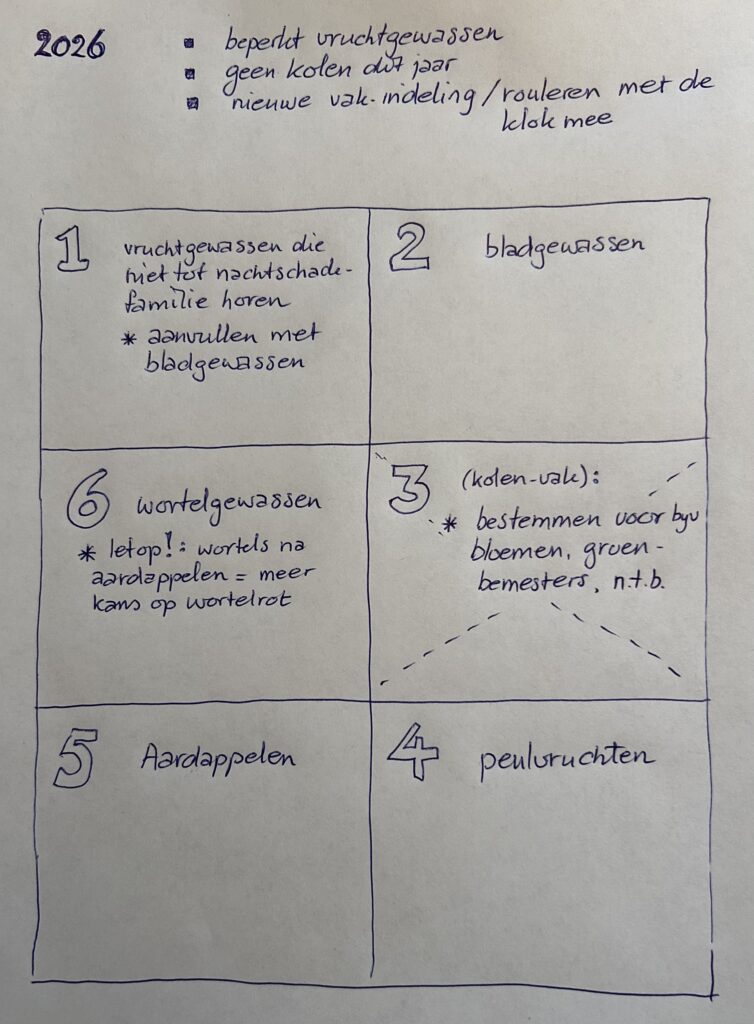 2026
▪ beperkt vruchtgewassen
▪ geen kolen dit jaar
▪ nieuwe vak-indeling / rouleren met de
klok mee
1 vruchtgewassen die
niet tot nachtschade-
familie horen
* aanvullen met
bladgewassen
2 bladgewassen
6 wortelgewassen
* let op!: wortels na
aardappelen = meer
kans op wortelrot
3 (kolen-vak):
* bestemmen voor bijv
bloemen, groen-
bemesters, n.t.b.
5 Aardappelen
4 peulvruchten